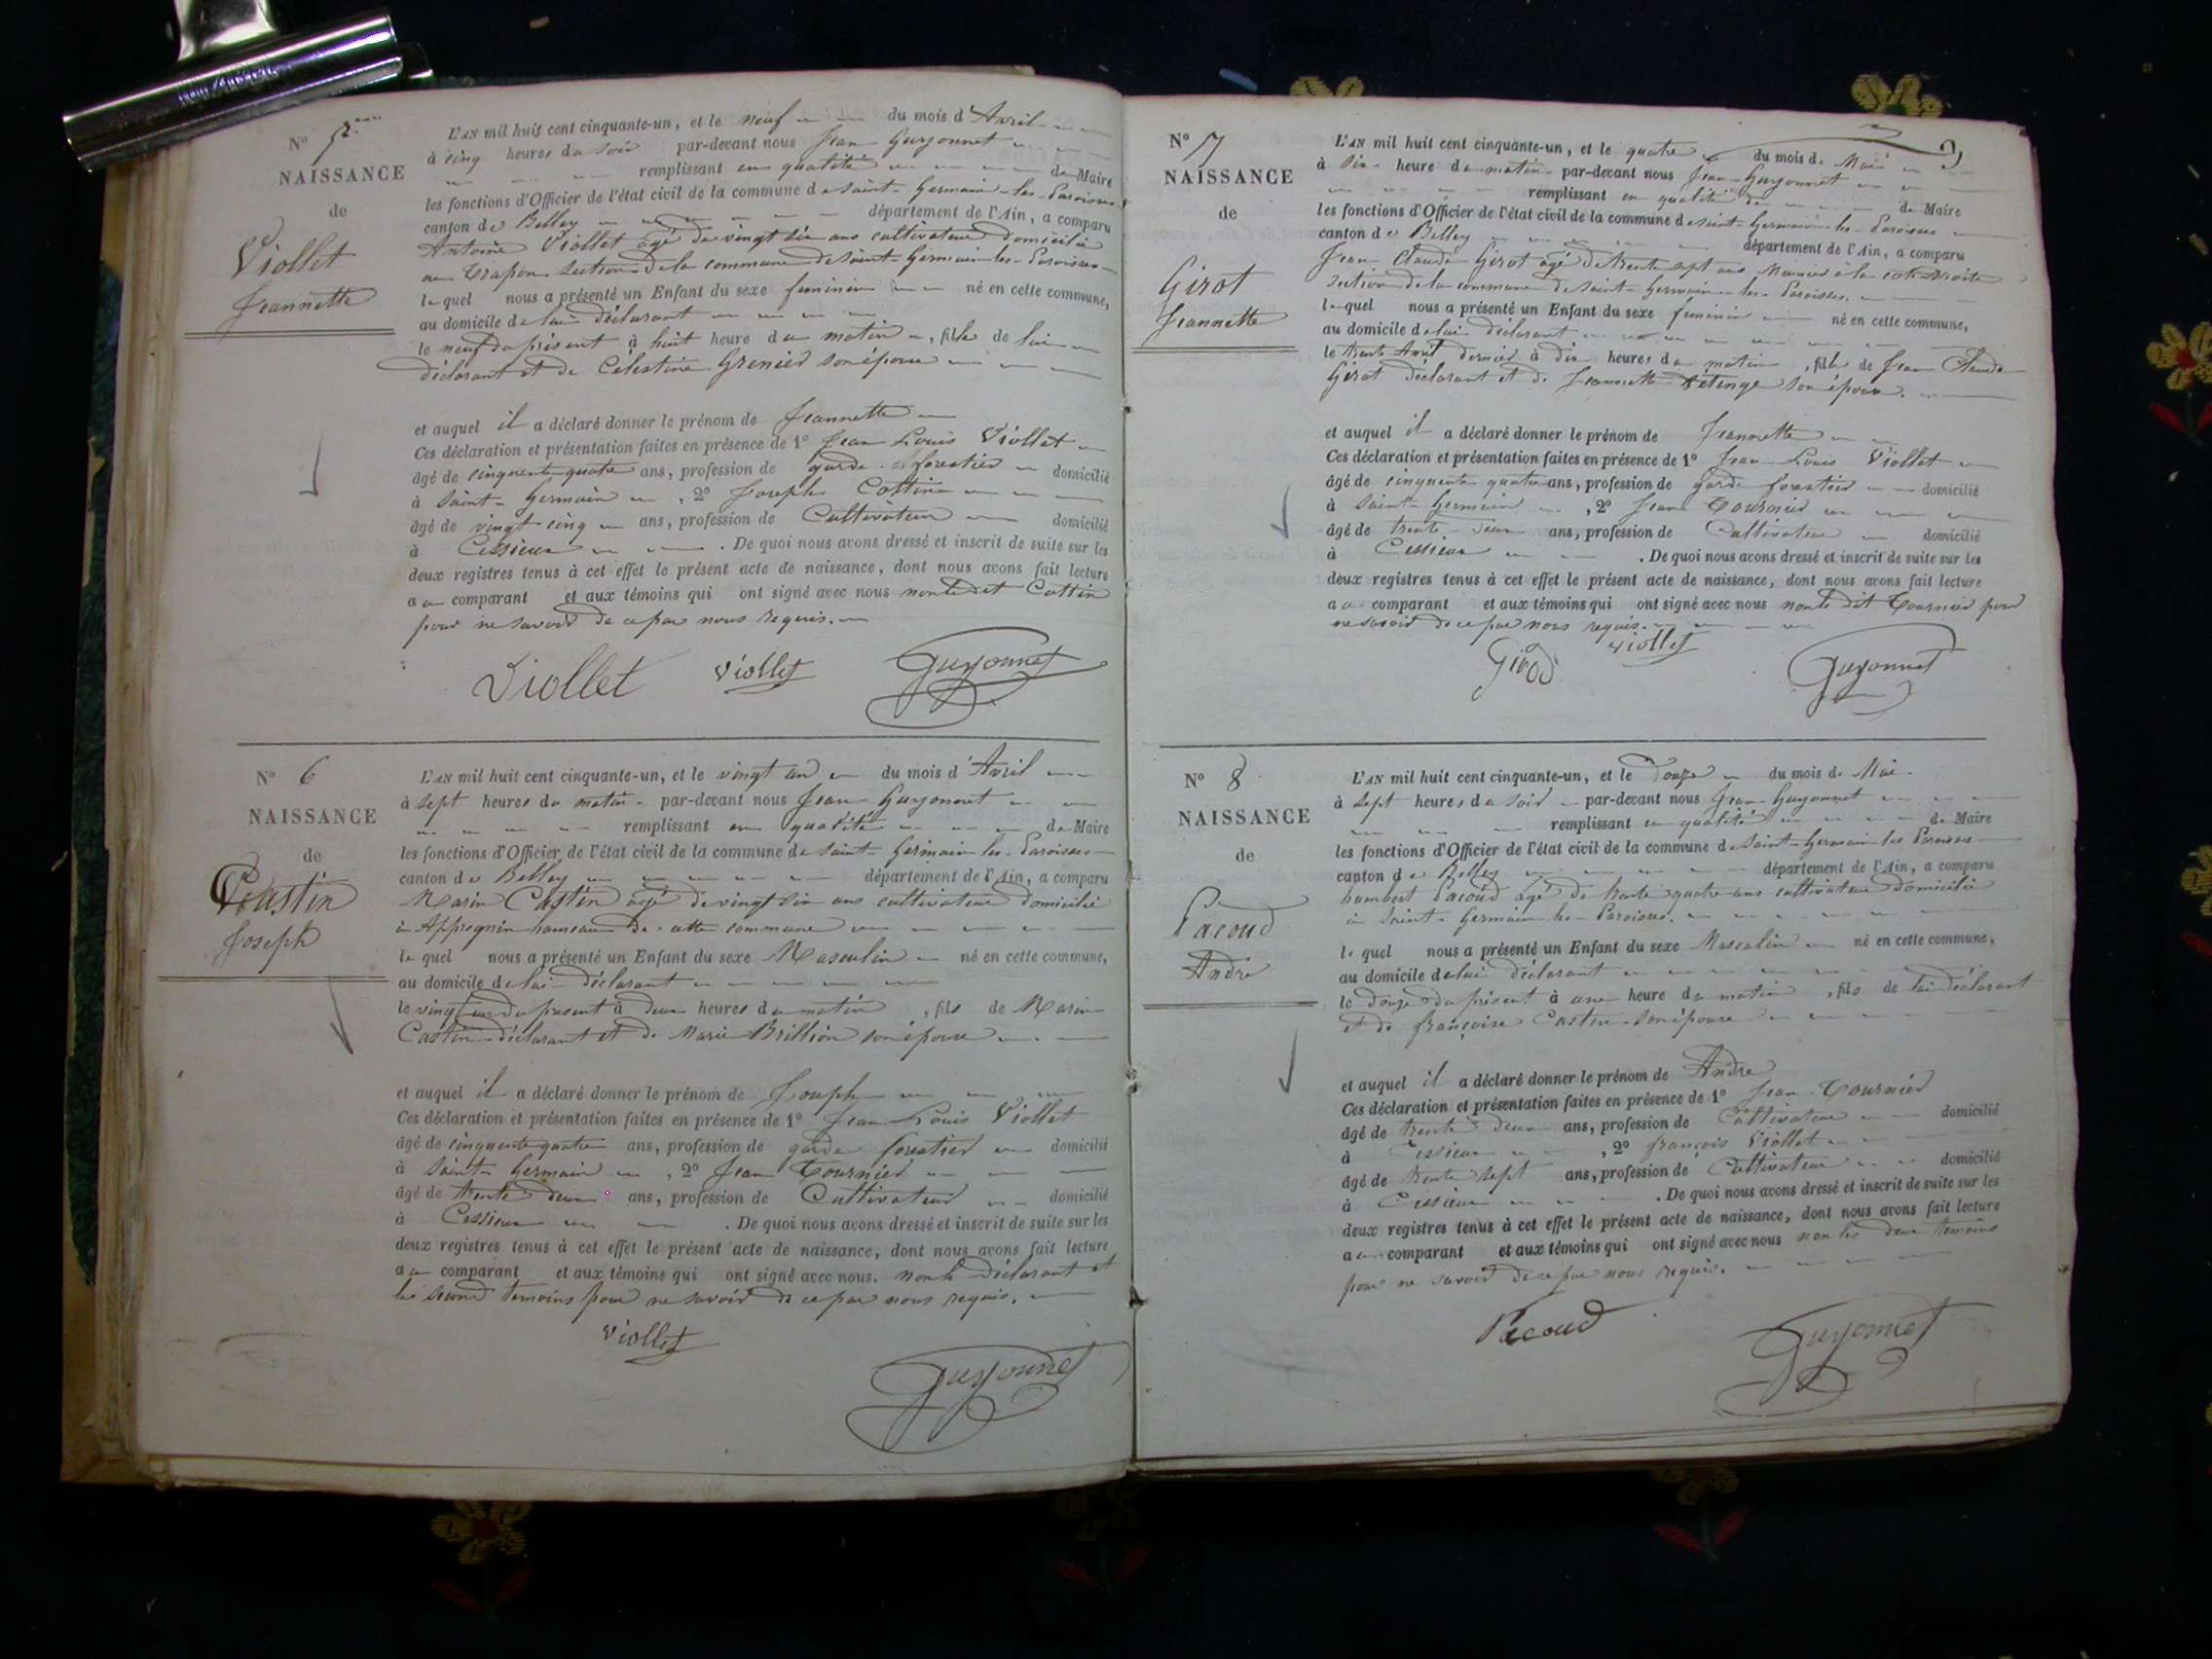 N° 5
NAISSANCE
de
Viollet
Jeannette
L'AN mil huit cent cinquante-un, et le neuf du mois d'Avril
à cinq heures du soir par-devant nous Jean Guyonnet
remplissant en qualité de Maire
les fonctions d'Officier de l'état civil de la commune de Saint-Germain-les-Paroisses
canton de Belley département de l'Ain, a comparu
Antoine Viollet agé de vingt six ans cultivateur domicilié
au Crapon section de la commune de Saint-Germain-les-Paroisses
lequel nous a présenté un Enfant du sexe feminin né en cette commune,
au domicile de lui déclarant
le neuf du présent à huit heure du matin, fille de lui
déclarant et de Célestine Grenier son épouse
et auquel il a déclaré donner le prénom de Jeannette
Ces déclaration et présentation faites en présence de 1° Jean Louis Viollet
âgé de cinquante quatre ans, profession de garde forestier domicilié
à Saint-Germain, 2° Joseph Cottin
âgé de vingt cinq ans, profession de Cultivateur domicilié
à Cessieux. De quoi nous avons dressé et inscrit de suite sur les
deux registres tenus à cet effet le présent acte de naissance, dont nous avons fait lecture
au comparant et aux témoins qui ont signé avec nous non le dit Cottin
pour ne savoir de ce par nous requis.
Viollet viollet Guyonnet
N° 6
NAISSANCE
de
Castin
Joseph
L'AN mil huit cent cinquante-un, et le vingt un du mois d'Avril
à sept heures du matin par-devant nous Jean Guyonnet
remplissant en qualité de Maire
les fonctions d'Officier de l'état civil de la commune de Saint-Germain-les-Paroisses
canton de Belley département de l'Ain, a comparu
Marin Castin agé de vingt six ans cultivateur domicilié
à Appregnin hameau de cette commune
lequel nous a présenté un Enfant du sexe Masculin né en cette commune,
au domicile de lui déclarant
le vingt un du present à deux heures du matin, fils de Marin
Castin déclarant et de Marie Brillion son épouse
et auquel il a déclaré donner le prénom de Joseph
Ces déclaration et présentation faites en présence de 1° Jean Louis Viollet
âgé de cinquante quatre ans, profession de garde forestier domicilié
à Saint-Germain, 2° Jean Tournier
âgé de trente deux ans, profession de Cultivateur domicilié
à Cessieux. De quoi nous avons dressé et inscrit de suite sur les
deux registres tenus à cet effet le présent acte de naissance, dont nous avons fait lecture
au comparant et aux témoins qui ont signé avec nous. non le déclarant et
le second temoins pour ne savoir de ce par nous requis.
viollet
Guyonnet
N° 7
NAISSANCE
de
Girot
Jeannette
L'AN mil huit cent cinquante-un, et le quatre du mois de Mai
à six heure du matin par-devant nous Jean Guyonnet
remplissant en qualité de Maire
les fonctions d'Officier de l'état civil de la commune de Saint-Germain-les-Paroisses
canton de Belley département de l'Ain, a comparu
Jean Claude Girot agé de trente sept ans Meunier à la
section de la commune de Saint-Germain-les-Paroisses.
lequel nous a présenté un Enfant du sexe feminin né en cette commune,
au domicile de lui déclarant
le trente Avril dernier à dix heures du matin, fille de Jean Claude
Girot déclarant et de Jeannette son épouse.
et auquel il a déclaré donner le prénom de Jeannette
Ces déclaration et présentation faites en présence de 1° Jean Louis Viollet
âgé de cinquante quatre ans, profession de garde forestier domicilié
à Saint-Germain, 2° Jean Tournier
âgé de trente deux ans, profession de Cultivateur domicilié
à Cessieux. De quoi nous avons dressé et inscrit de suite sur les
deux registres tenus à cet effet le présent acte de naissance, dont nous avons fait lecture
au comparant et aux témoins qui ont signé avec nous non le dit Tournier pour
ne savoir de ce par nous requis.
viollet
Girod Guyonnet
N° 8
NAISSANCE
de
Pacoud
André
L'AN mil huit cent cinquante-un, et le douze du mois de Mai
à sept heures du soir par-devant nous Jean Guyonnet
remplissant en qualité de Maire
les fonctions d'Officier de l'état civil de la commune de Saint-Germain-les Paroisses
canton de Belley département de l'Ain, a comparu
humbert Pacoud agé de trente quatre ans cultivateur domicilié
à Saint-Germain les-Paroisses.
lequel nous a présenté un Enfant du sexe Masculin né en cette commune,
au domicile de lui déclarant
le douze du présent à une heure du matin, fils de lui déclarant
et de françoise Castin son épouse
et auquel il a déclaré donner le prénom de André
Ces déclaration et présentation faites en présence de 1° Jean Tournier
âgé de trente deux ans, profession de Cultivateur domicilié
à Cessieux, 2° françois Viollet
âgé de trente sept ans, profession de Cultivateur domicilié
à Cessieux. De quoi nous avons dressé et inscrit de suite sur les
deux registres tenus à cet effet le présent acte de naissance, dont nous avons fait lecture
au comparant et aux témoins qui ont signé avec nous non les deux temoins
pour ne savoir de ce par nous requis.
Pacoud
Guyonnet